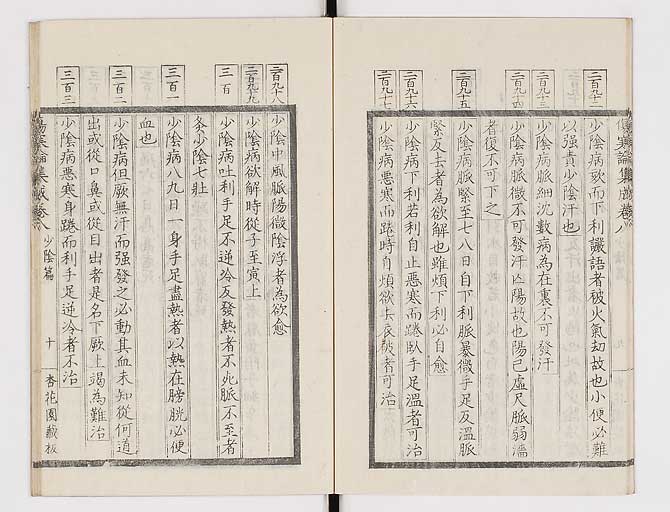 二百九十二
少陰病欬而下利讝語者被火氣劫故也小便必難
以強責少陰汗也
二百九十三
少陰病脈細沈數病為在裏不可發汗
二百九十四
少陰病脈微不可發汗亾陽故也陽已虛尺脈弱濇
者復不可下之
二百九十五
少陰病脈緊至七八日自下利脈暴微手足反溫脈
緊反去者為欲解也雖煩下利必自愈
二百九十六
少陰病下利若利自止惡寒而踡臥手足溫者可治
二百九十七
少陰病惡寒而踡時自煩欲去衣被者可治
二百九十八
少陰中風脈陽微陰浮者為欲愈
二百九十九
少陰病欲解時從子至寅上
三百
少陰病吐利手足不逆冷反發熱者不死脈不至者
灸少陰七壯
三百一
少陰病八九日一身手足盡熱者以熱在膀胱必便
血也
三百二
少陰病但厥無汗而強發之必動其血未知從何道
出或從口鼻或從目出者是名下厥上竭為難治
三百三
少陰病惡寒身踡而利手足逆冷者不治
傷寒論集成卷八
少陰篇
十
杏花園藏板